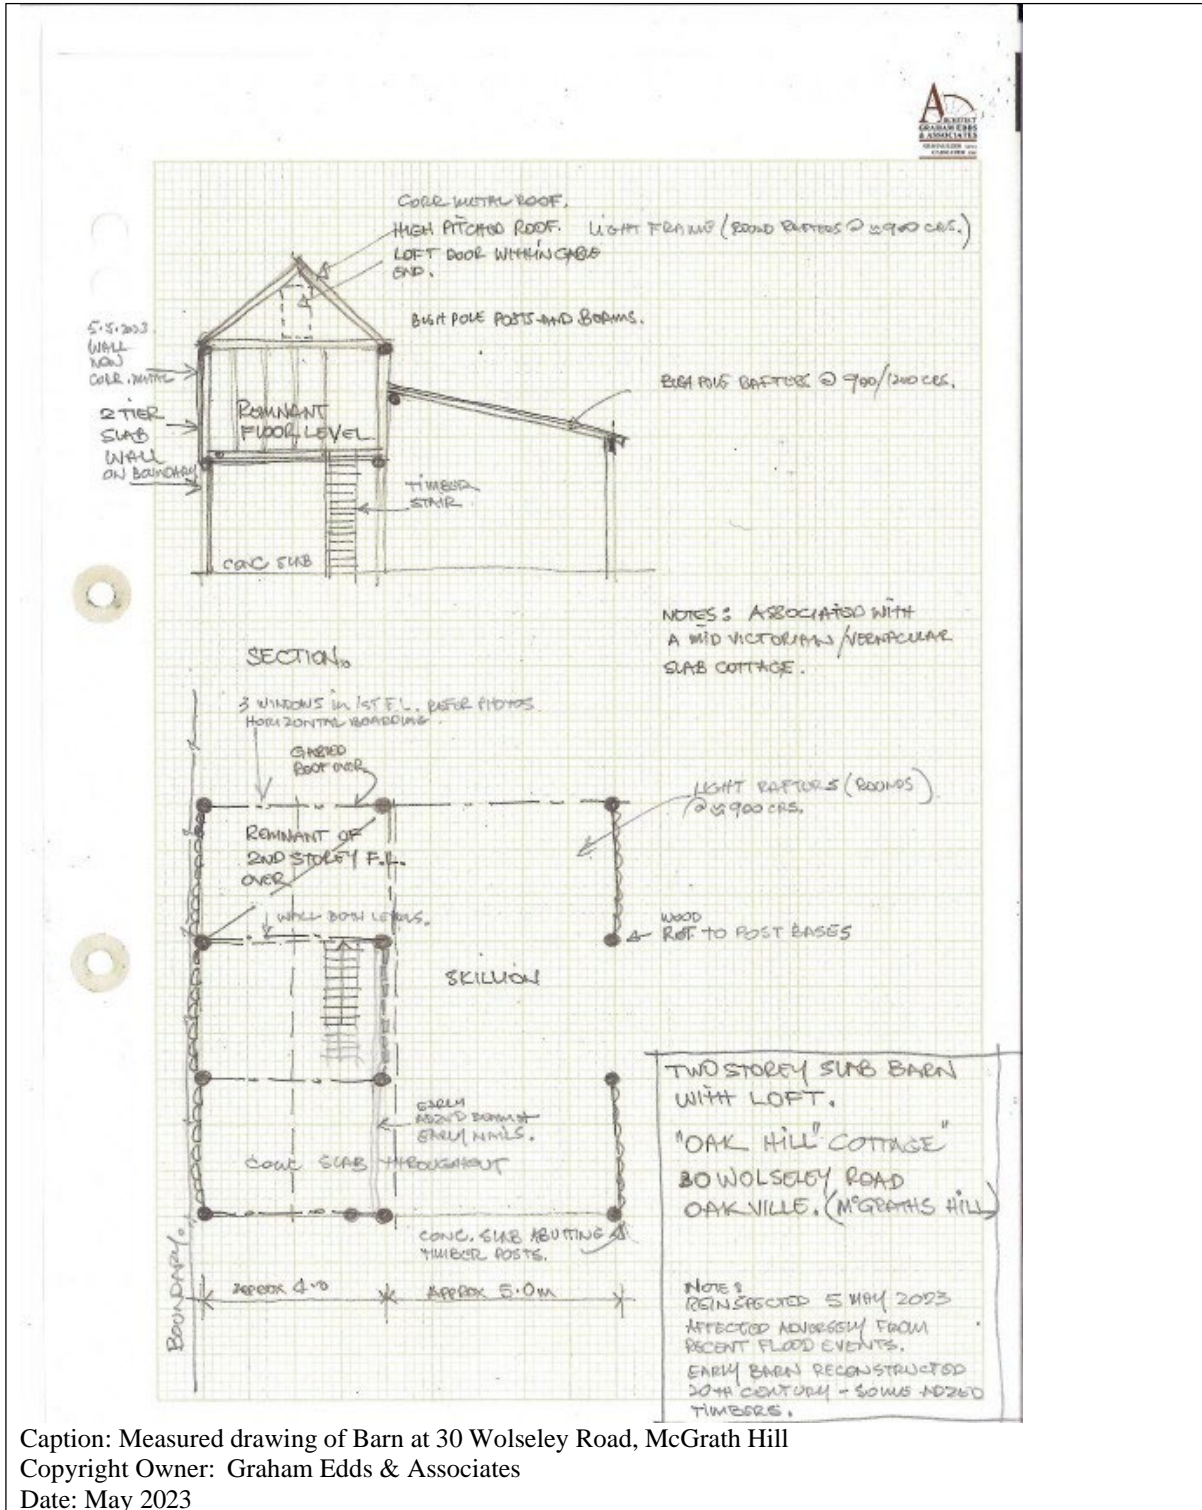 ARCHITECT
GRAHAM EDDS
& ASSOCIATES
CORR METAL ROOF.
HIGH PITCHED ROOF. LIGHT FRAME (ROUND RAFTERS @ 900 CRS.)
LOFT DOOR WITHIN GABLE
END.
BUSH POLE POSTS AND BEAMS.
5.5.2023
WALL
NOW
CORR. METAL
BUSH POLE RAFTERS @ 900/1200 CRS.
2 TIER
SLAB
WALL
ON BOUNDARY
REMNANT
FLOOR LEVEL
TIMBER
STAIR
CONC SLAB
NOTES: ASSOCIATED WITH
A MID VICTORIAN/VERNACULAR
SLAB COTTAGE.
SECTION.
3 WINDOWS in 1ST F.L. REFER PHOTOS
HORIZONTAL BOARDING.
GABLED
ROOF OVER
LIGHT RAFTERS (ROUNDS)
@ 900 CRS.
REMNANT OF
2ND STOREY F.L.
OVER
WALL BOTH LEVELS.
WOOD
ROT TO POST BASES
SKILLION
EARLY
ADZED BEAM &
EARLY NAILS.
CONC SLAB THROUGHOUT
CONC. SLAB ABUTTING
TIMBER POSTS.
BOUNDARY.
APPROX 4.0
APPROX 5.0m
TWO STOREY SLAB BARN
WITH LOFT.
"OAK HILL" COTTAGE"
30 WOLSELEY ROAD
OAKVILLE. (McGRATHS HILL)
NOTE:
REINSPECTED 5 MAY 2023
AFFECTED ADVERSELY FROM
RECENT FLOOD EVENTS.
EARLY BARN RECONSTRUCTED
20TH CENTURY - SOME ADZED
TIMBERS.
Caption: Measured drawing of Barn at 30 Wolseley Road, McGrath Hill
Copyright Owner: Graham Edds & Associates
Date: May 2023